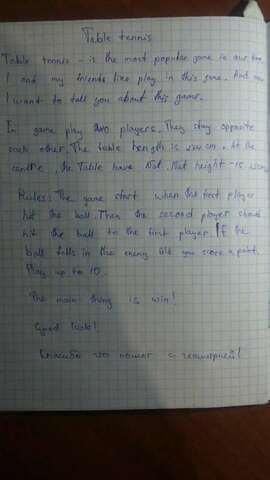 Table tennis
Table tennis - is the most popular game in our time.
I and my friends like play in this game. And now
I want to tell you about this game.
In game play two players. They stay opposite
each other. The table height is cm. At the
centre, the table have net. Net height - is
Rules: The game start when the first player
hit the ball. Then the second player should
hit the ball to the first player. If the
ball falls in the enemy you score a point.
Play up to 10.
The main thing is win!
Good luck!
Спасибо что помог с